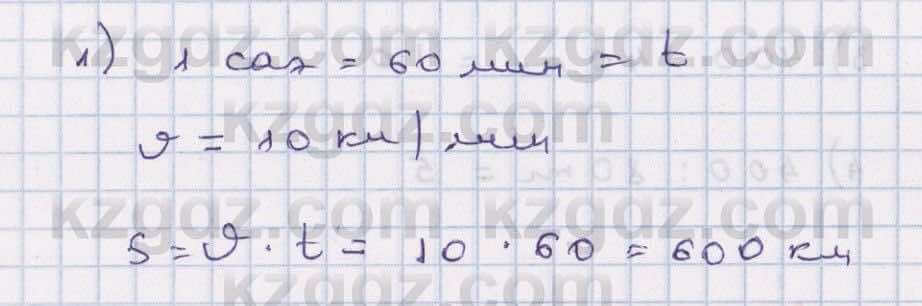 1) 1 сағ = 60 мин = t
kzgdz.com kzgdz.com
v = 10 км/мин
kzgdz.com
S = v · t = 10 · 60 = 600 км
kzgdz.com kzgdz.com
kzgdz.com